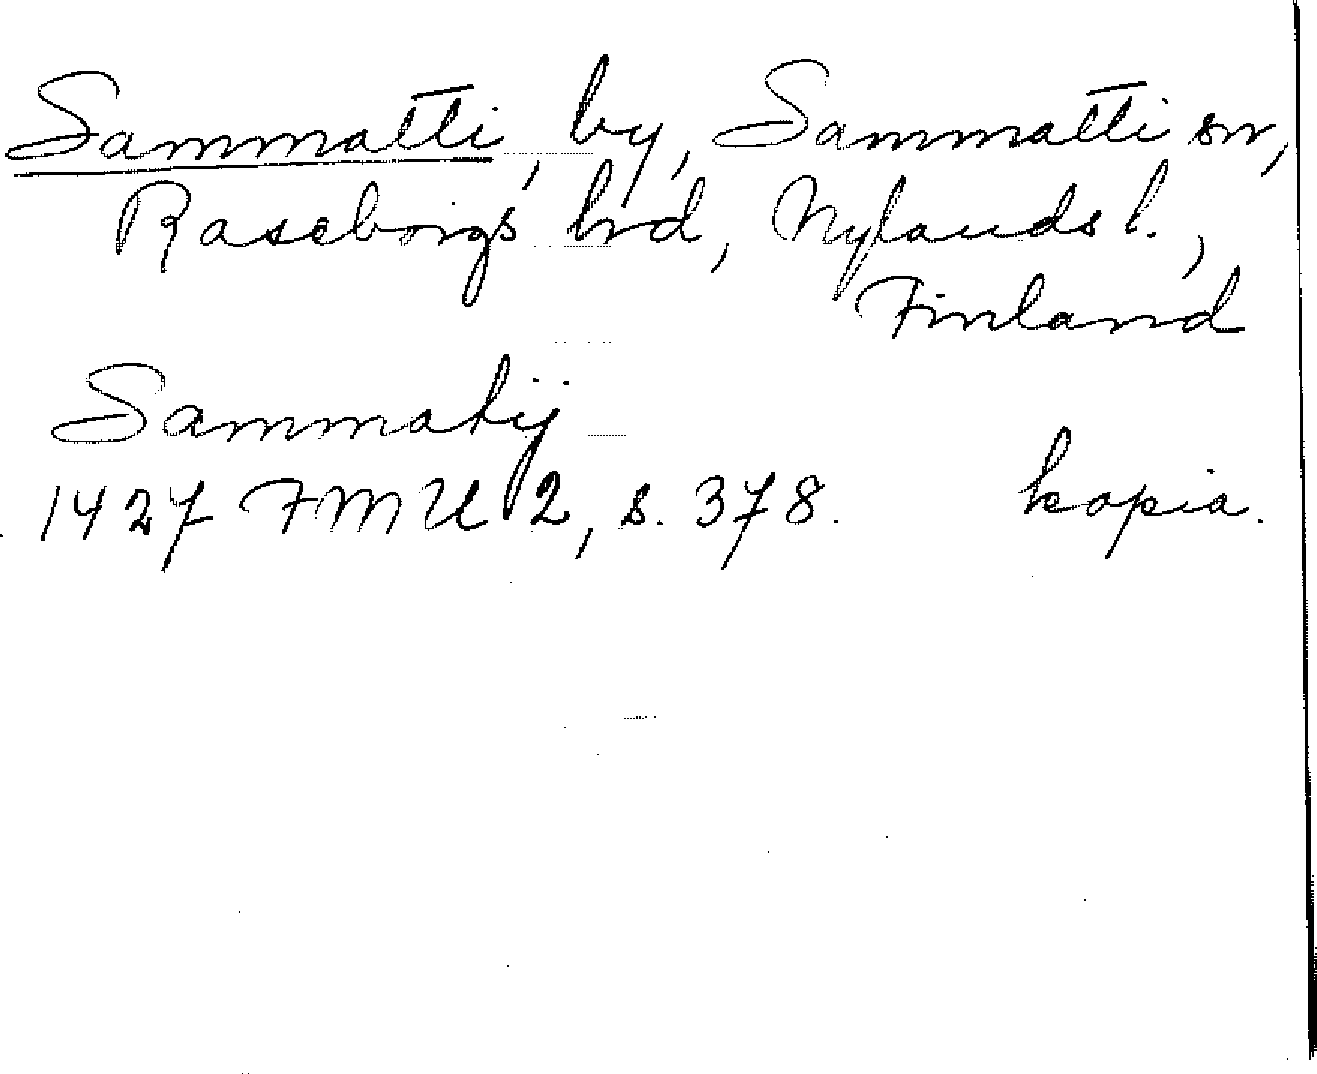 Sammatti, by, Sammatti sn,
Raseborgs hrd, Nylands l.,
Finland
Sammatij
1427 FMU 2, s. 378. kopia.